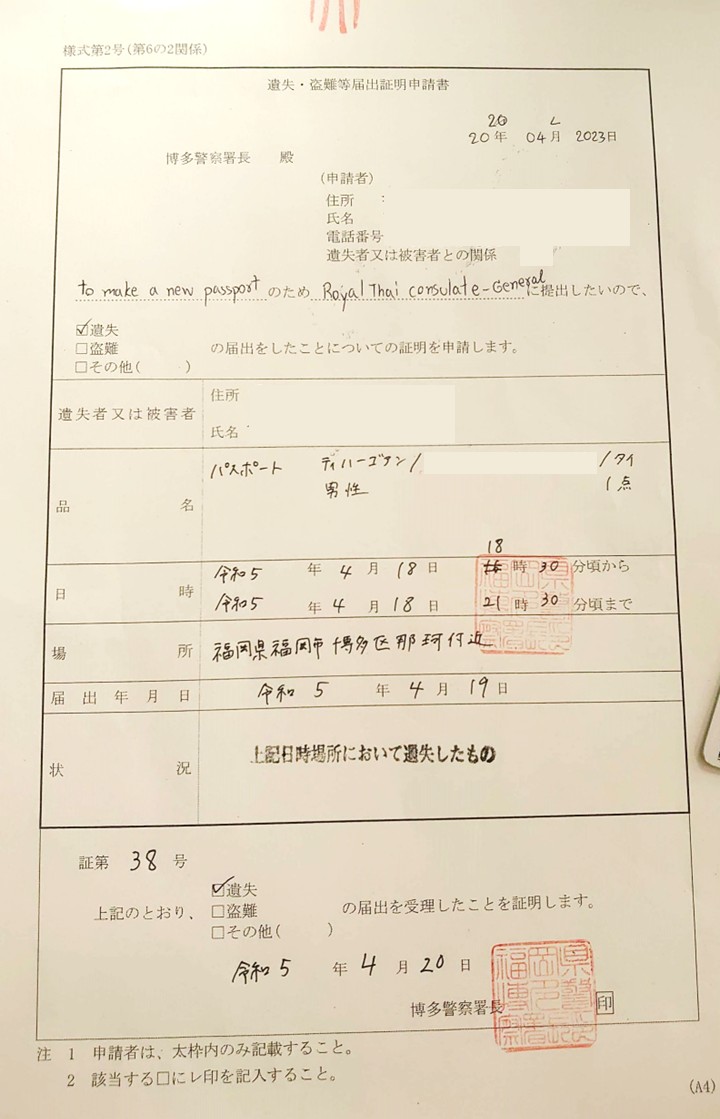 様式第2号(第6の2関係)
遺失・盗難等届出証明申請書
20
20年 04月 2023日
博多警察署長 殿
(申請者)
住所 :
氏名
電話番号
遺失者又は被害者との関係
to make a new passport のため Royal Thai consulate-General に提出したいので、
☑遺失
□盗難 の届出をしたことについての証明を申請します。
□その他( )
遺失者又は被害者 住所
氏名
品名 パスポート ディハーゴアン/ /タイ
男性 1点
18
日時 令和5年4月18日 時30分頃から
令和5年4月18 21時30分頃まで
場所 福岡県福岡市博多区那珂付近
届出年月日 令和5年4月19日
状況 上記日時場所において遺失したもの
証第 38 号
☑遺失
上記のとおり、□盗難 の届出を受理したことを証明します。
□その他( )
令和5年4月20日
博多警察署長 印
注 1 申請者は、太枠内のみ記載すること。
2 該当する□にレ印を記入すること。
(A4)